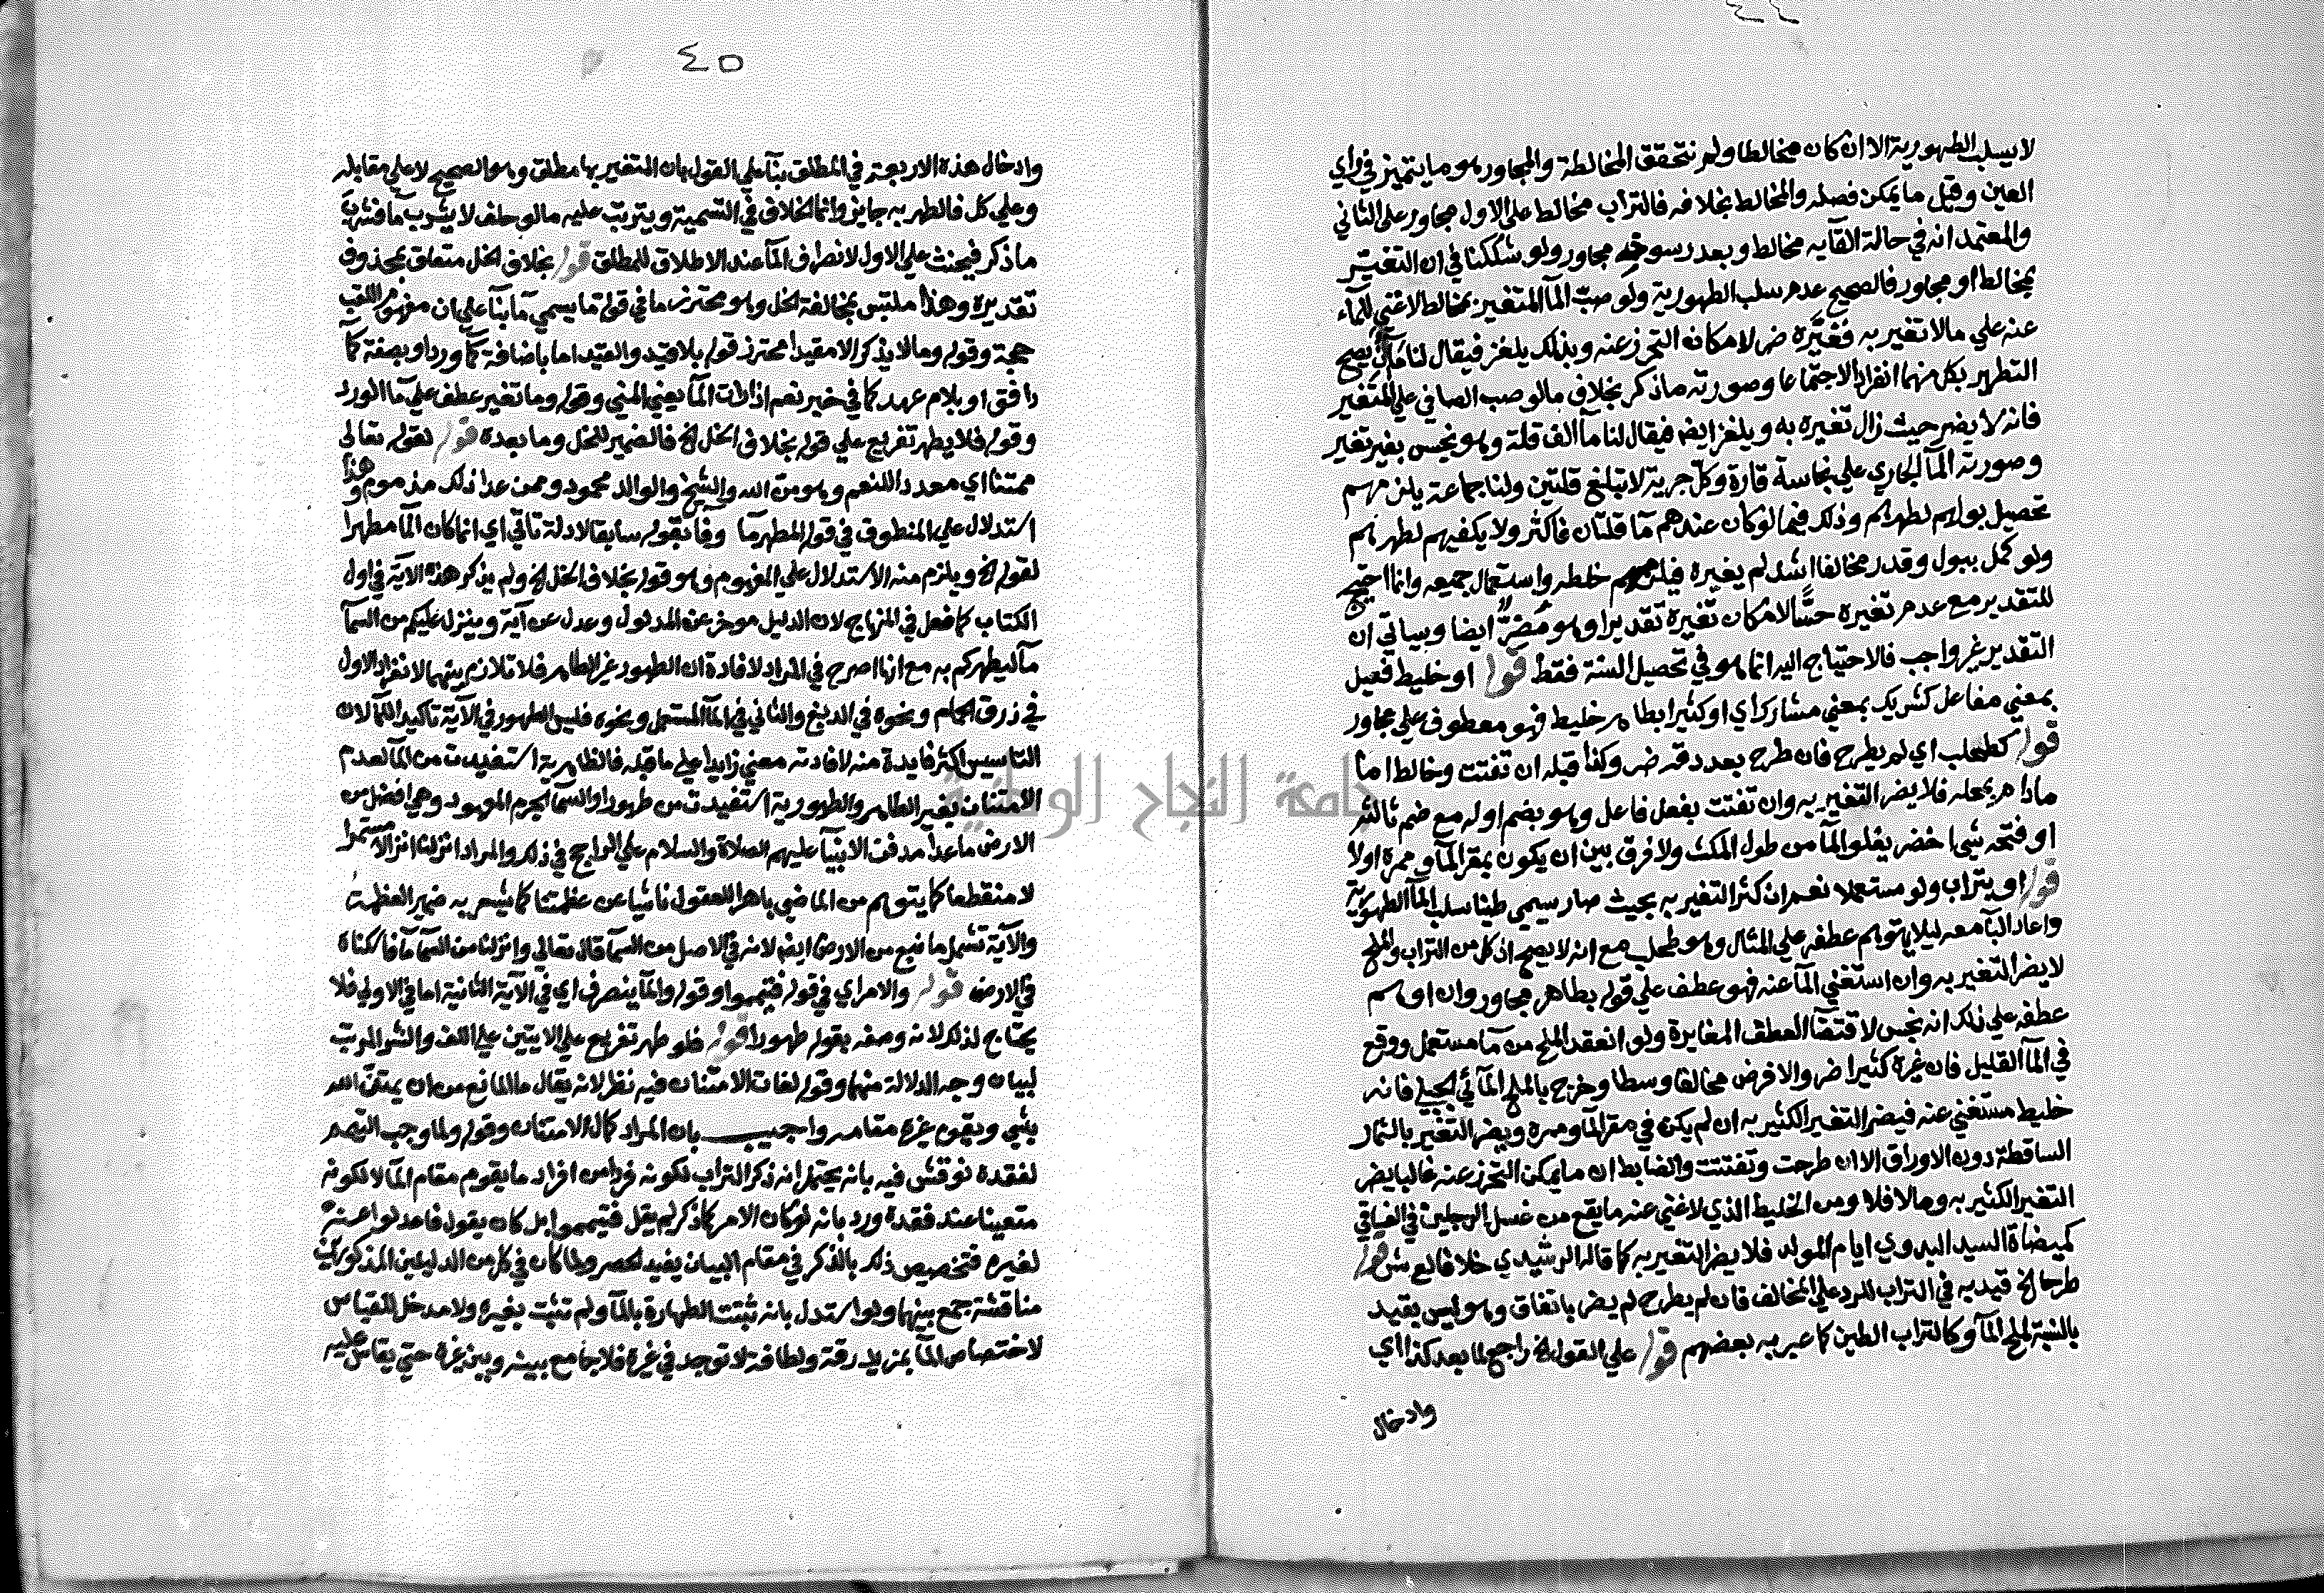 لا يسلب الطهورية الا ان كان مخالطا ولم نتحقق المخالطة والمجاور هو ما يتميز في راي
العين وقيل ما يمكن فصله والمخالط بخلافه فالتراب مخالط على الاول مجاور على الثاني
والمعتمد انه في حالة القآيه مخالط وبعد رسوخه مجاور ولو شككنا في ان التغير
بمخالط او مجاور فالصحيح عدم سلب الطهورية ولو صب المآ المتغير بمخالط لا غني للماء
عنه علي ما لا تغير به فغيّره ضر لامكان التحرز عنه وبذلك يلغز فيقال لنا مآآن يصح
التطهير بكل منهما انفرادا لا اجتماعا وصورته ما ذكر بخلاف ما لو صب الصافي علي المتغير
فانه لا يضر حيث زال تغيره به ويلغز ايضا فيقال لنا مآ الف قلة وهو نجس بغير تغير
وصورته المآ الجاري علي نجاسة قارة وكل جرية لا تبلغ قلتين ولنا جماعة يلزمهم
تحصيل بولهم لطهرهم وذلك فيما لو كان عندهم مآ قلتان فاكثر ولا يكفيهم لطهرهم
ولو كمل ببول وقدر مخالفا اشد لم يغيره فيلزمهم خلطه واستعمال جميعه وانما احتيج
للتقدير مع عدم تغيره حسًّا لامكان تغيره تقديرا وهو مُضرّ ايضا وسياتي ان
التقدير غير واجب فالاحتياج اليه انما هو في تحصيل السنة فقط قوله او خليط فعيل
بمعني مفاعل كشريك بمعني مشارك اي او كثيرا بطاهر خليط فهو معطوف علي مجاور
قوله كطحلب اي لم يطرح فان طرح بعد دقه ضر وكذا قبله ان تفتت وخالط اما
ما دام بمحله فلا يضر التغير به وان تفتت بفعل فاعل وهو بضم اوله مع ضم ثالثه
او فتحه شي اخضر يعلو المآ من طول المكث ولا فرق بين ان يكون بمقر المآ وممره اولا
قوله او بتراب ولو مستعملا نعم ان كثر التغير به بحيث صار يسمي طينا سلب المآ الطهورية
واعاد البآ معه ليلا يتوهم عطفه علي المثال وهو طحلب مع انه لا يصح اذ كل من التراب والملح
لا يضر التغير به وان استغني المآ عنه فهو عطف علي قوله بطاهر مجاور وان اوهم
عطفه علي ذلك انه نجس لاقتضآ العطف المغايرة ولو انعقد الملح من مآ مستعمل ووقع
في المآ القليل فان غيره كثيرا ضر والا فرض مخالفا وسطا وخرج بالملح المآئي الجبلي فانه
خليط مستغني عنه فيضر التغير الكثير به ان لم يكن في مقر المآ وممره ويضر التغير بالثمار
الساقطة دون الاوراق الا ان طرحت وتفتتت والضابط ان ما يمكن التحرز عنه غالبا يضر
التغير الكثير به وما لا فلا ومن الخليط الذي لا غني عنه ما يقع من غسل الرجلين في الفياقي
كميضاة السيد البدوي ايام المولد فلا يضر التغير به كما قاله الرشيدي خلافا لع ش قوله
طرحا الخ قيد به في التراب للرد علي المخالف فان لم يطرح لم يضر باتفاق وهو ليس بقيد
بالنسبة لملح المآ وكالتراب الطين كما عبر به بعضهم قوله علي القول الخ راجع لما بعد كذا اي
وادخال
٤٥
وادخال هذه الاربعة في المطلق بنآ علي القول بان التغير بها مطلق وهو الصحيح لا علي مقابله
وعلي كل فالطهر به جايز وانما الخلاف في التسمية ويترتب عليه ما لو حلف لا يشرب مآ فشرب
ما ذكر فيحنث علي الاول لانصراف المآ عند الاطلاق للمطلق قوله بخلاف الخل متعلق بمحذوف
تقديره وهذا ملتبس بمخالفة الخل وهو محترز ما في قوله ما يسمي مآ بنآ علي ان مفهوم اللقب
حجة وقوله وما لا يذكر الا مقيدا محترز قوله بلا قيد والقيد اما باضافة كمآ ورد او بصفة كمآ
دافق او بلام عهد كما في خبر نعم اذا رات المآ يعني المني وقوله وما تغير عطف علي مآ الورد
وقوله فلا يطهر تفريع علي قوله بخلاف الخل الخ فالضمير للخل وما بعده قوله لقوله تعالى
ممتنا اي معددا للنعم وهو من الله والشيخ والوالد محمود وممن عدا ذلك مذموم وهذا
استدلال علي المنطوق في قوله المطهر مآ وفآ بقوله سابقا لادلة تاتي اي انما كان المآ مطهرا
لقوله الخ ويلزم منه الاستدلال علي المفهوم وهو قوله بخلاف الخل الخ ولم يذكر هذه الاية في اول
الكتاب كما فعل في المنهاج لان الدليل موخر عن المدلول وعدل عن آية وينزل عليكم من السمآ
مآ ليطهركم به مع انها اصرح في المراد لافادة ان الطهور غير الطاهر فلا تلازم بينهما لانفراد الاول
في ذرق الحمام ونحوه في الدبغ والثاني في المآ المستعمل ونحوه فليس الطهور في الآية تاكيدا للمآ لان
التاسيس اكثر فايدة منه لافادته معني زايدا علي ما قبله فالطاهرية استفيدت من المآ لعدم
الامتنان بغير الطاهر والطهورية استفيدت من طهورا والسمآ الجرم المعهود وهي افضل من
الارض ما عدا مدفن الانبيآ عليهم الصلاة والسلام علي الراجح في ذلك والمراد انزلنا انزالا مستمرا
لا منقطعا كما يتوهم من الماضي باهرا للعقول ناشيا عن عظمتنا كما يشعر به ضمير العظمة
والآية تشمل ما نبع من الارض ايضا لانه في الاصل من السمآ قال تعالي وانزلنا من السمآ مآ فاسكناه
في الارض قوله والامر اي في قوله فتيمموا وقوله والمآ ينصرف اي في الآية الثانية اما في الاولي فلا
يحتاج لذلك لانه وصفه بقوله طهورا قوله فلو طهر تفريع علي الايتين علي اللف والنشر المرتب
لبيان وجه الدلالة منهما وقوله لفات الامتنان فيه نظر لانه يقال ما المانع من ان يمتن الله
بشي ويقوم غيره مقامه واجيب بان المراد كمال الامتنان وقوله ولما وجب التيمم
لفقده نوقش فيه بانه يحتمل انه ذكر التراب لكونه فردا من افراد ما يقوم مقام المآ لا لكونه
متعينا عند فقده ورد بانه لو كان الامر كما ذكر لم يقل فتيمموا بل كان يقول فاعدلوا عنه
لغيره فتخصيص ذلك بالذكر في مقام البيان يفيد الحصر ولما كان في كل من الدليلين المذكورين
مناقشة جمع بينهما ولو استدل بانه ثبتت الطهارة بالمآ ولم تثبت بغيره ولا مدخل للقياس
لاختصاص المآ بمزيد رقة ولطافة لا توجد في غيره فلا جامع بينه وبين غيره حتي يقاس عليه
جامعة النجاح الوطنية